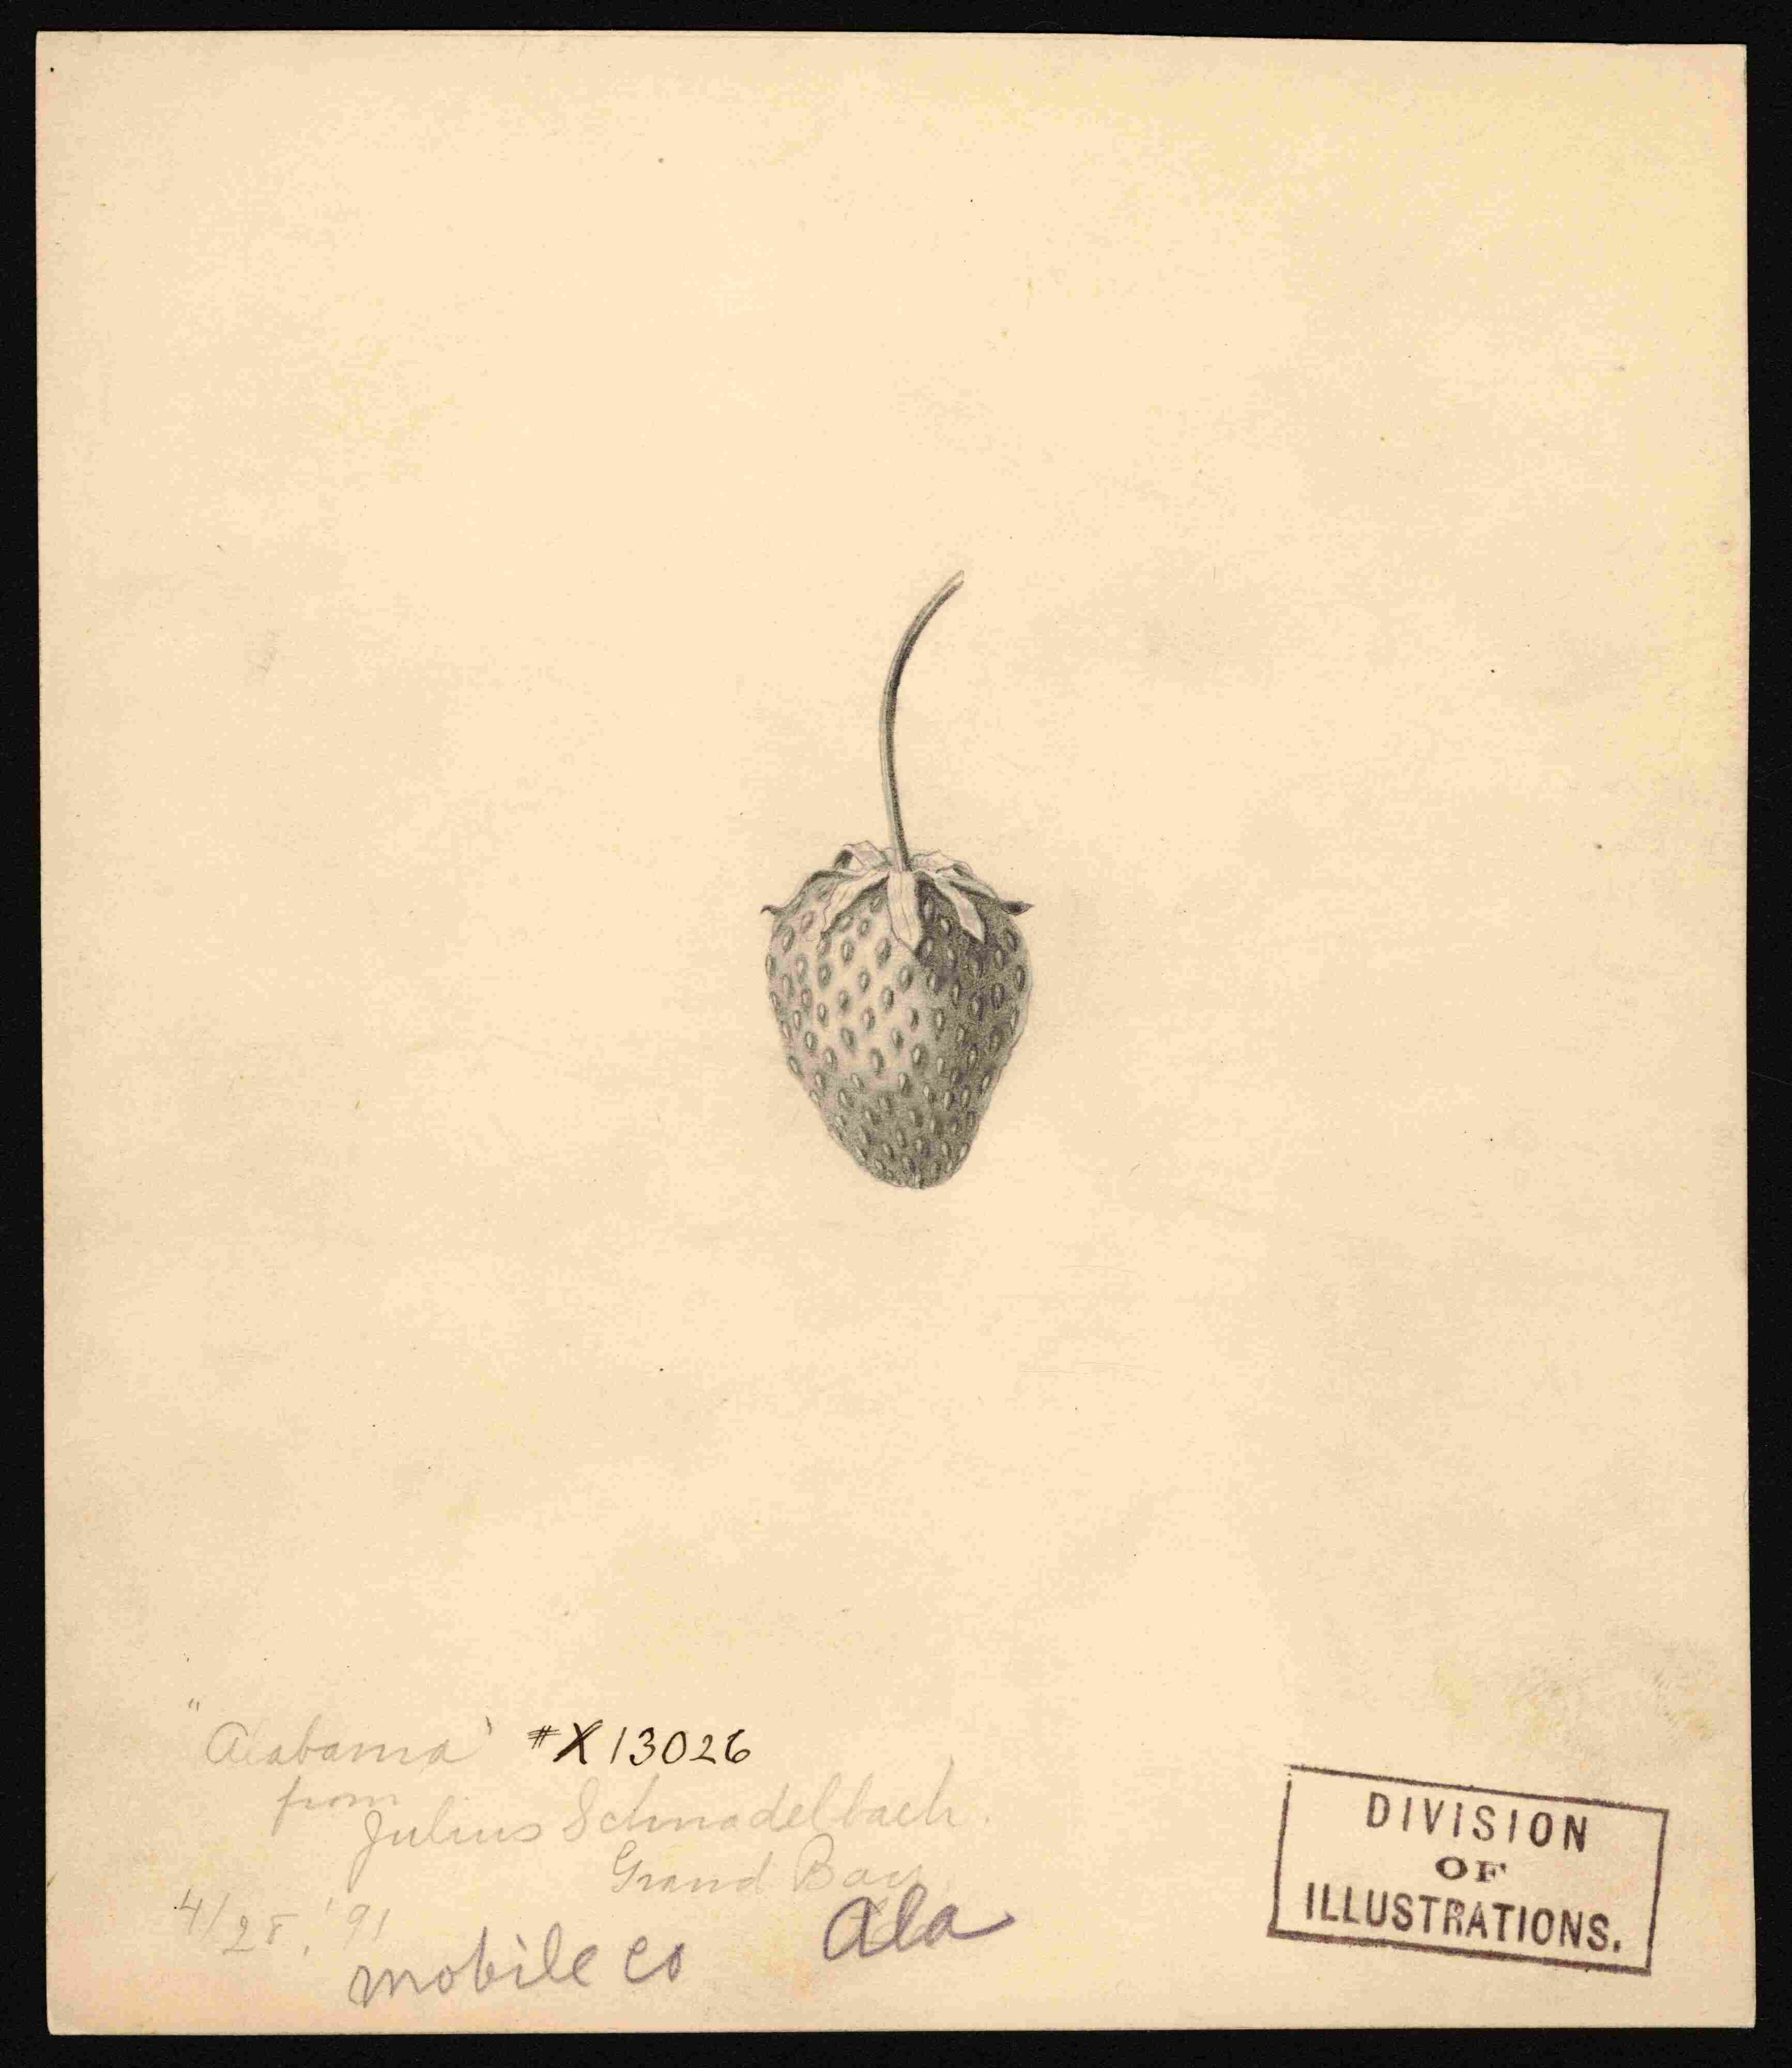 "Alabama" #X13026
from
Julius Schnadelbach.
Grand Bay
Ala
4/28, '91
mobile co
DIVISION
OF
ILLUSTRATIONS.